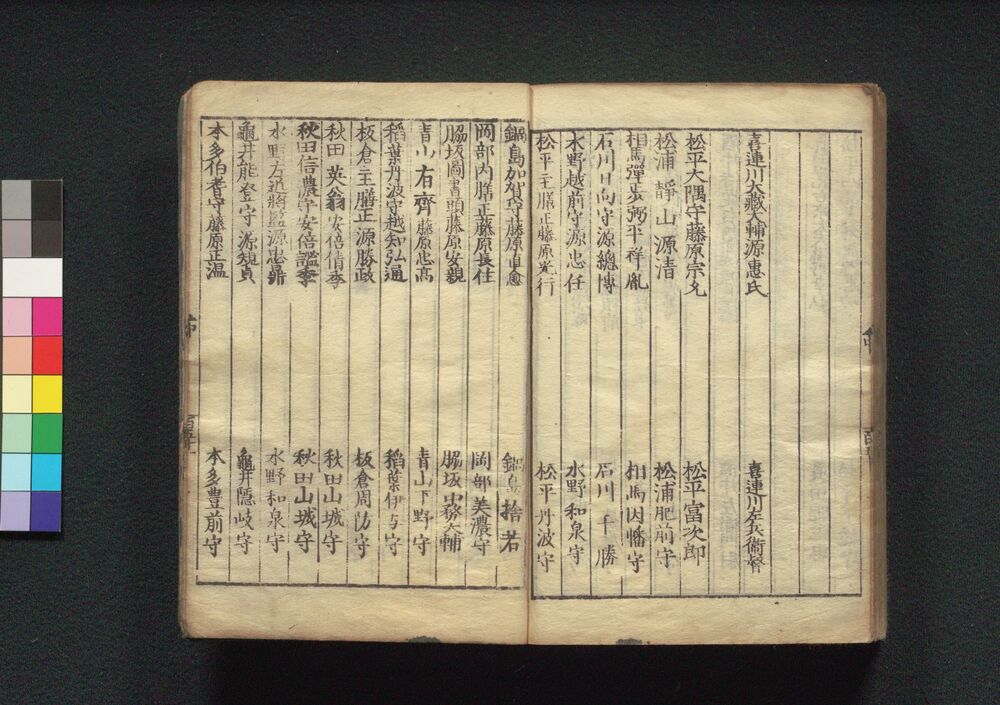 喜連川大藏大輔源惠氏 喜連川左兵衞督
松平大隅守藤原宗允 松平富次郎
松浦靜山源清 松浦肥前守
相馬彈正少弼平祥胤 相馬因幡守
石川日向守源總博 石川千勝
水野越前守源忠任 水野和泉守
松平主膳正藤原光行 松平丹波守
鍋島加賀守藤原直愈 鍋島捨若
岡部内膳正藤原長住 岡部美濃守
脇坂圖書頭藤原安親 脇坂中務大輔
青山有齊藤原忠高 青山下野守
稻葉丹波守越知弘通 稻葉伊与守
板倉主膳正源勝政 板倉周防守
秋田英翁安倍倩季 秋田山城守
秋田信濃守安倍謐季 秋田山城守
水野左近將監源忠鼎 水野和泉守
龜井能登守源矩貞 龜井隱岐守
本多伯耆守藤原正温 本多豊前守